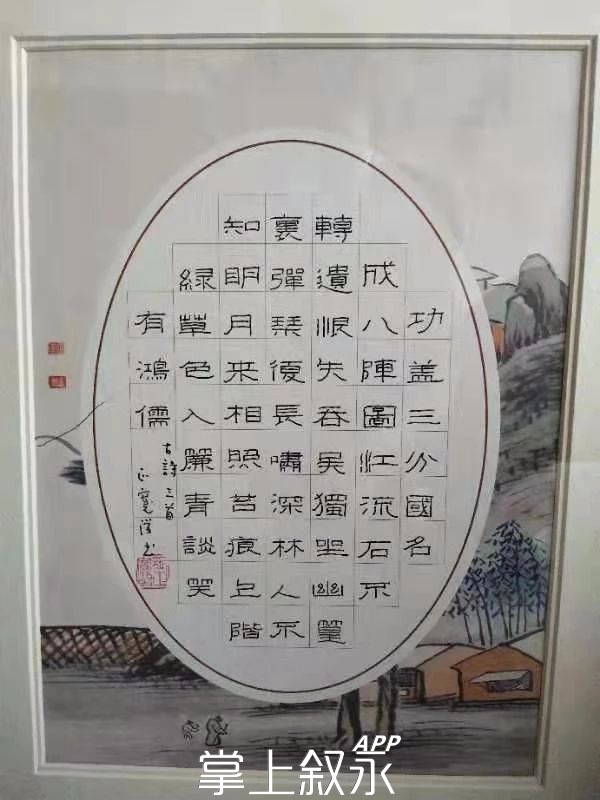 功盖三分國名
成八陣圖江流石不
轉遺恨失吞吴獨坐幽篁
裏彈琴復長嘯深林人不
知明月来相照苔痕上階
緑草色入簾青談笑
有鴻儒
古詩三首
掌上叙永APP